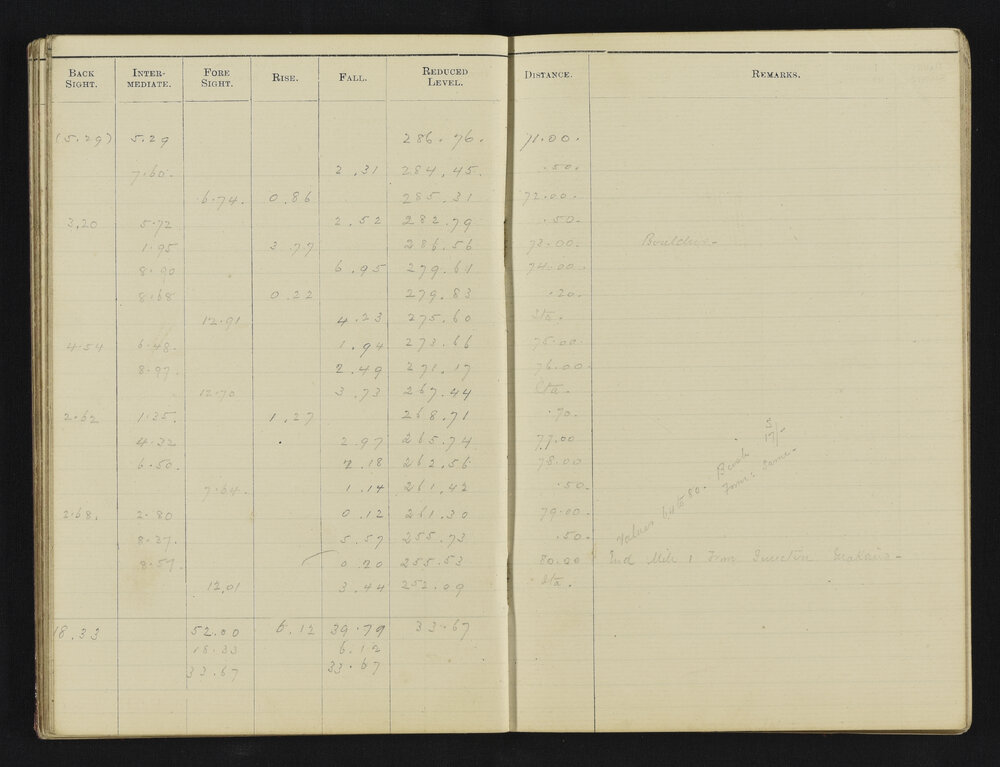 BACK SIGHT. INTER-MEDIATE. FORE SIGHT. RISE. FALL. REDUCED LEVEL. DISTANCE. REMARKS.
(5.29) 5.29 286.76. 71.00.
7.60. 2.31 284.45. .50.
6.74. 0.86 285.31 72.00.
3.20 5.72 2.52 282.79 .50.
1.95 3.77 286.56 73.00.
8.90 6.95 279.61 74.00.
8.68 0.22 279.83 .20.
12.91 4.23 275.60 Sta.
4.54 6.48. 1.94 273.66 75.00.
8.97. 2.49 271.17 76.00.
12.70 3.73 267.44 Sta.
2.62 1.35. 1.27 268.71 .70.
4.32 2.97 265.74 77.00
6.50. 2.18 262.56 78.00
7.64. 1.14 261.42 .50.
2.68. 2.80 0.12 261.30 79.00.
8.37. 5.57 255.73 .50.
8.57. 0.20 255.53 80.00 End Mile 1 From Junction
12.01 3.44 252.09 Sta.
Values 64 to 80. Bank 5 17/-
Form: Same.
18.33 52.00 6.12 39.79 33.67
18.33 6.12
33.67 33.67